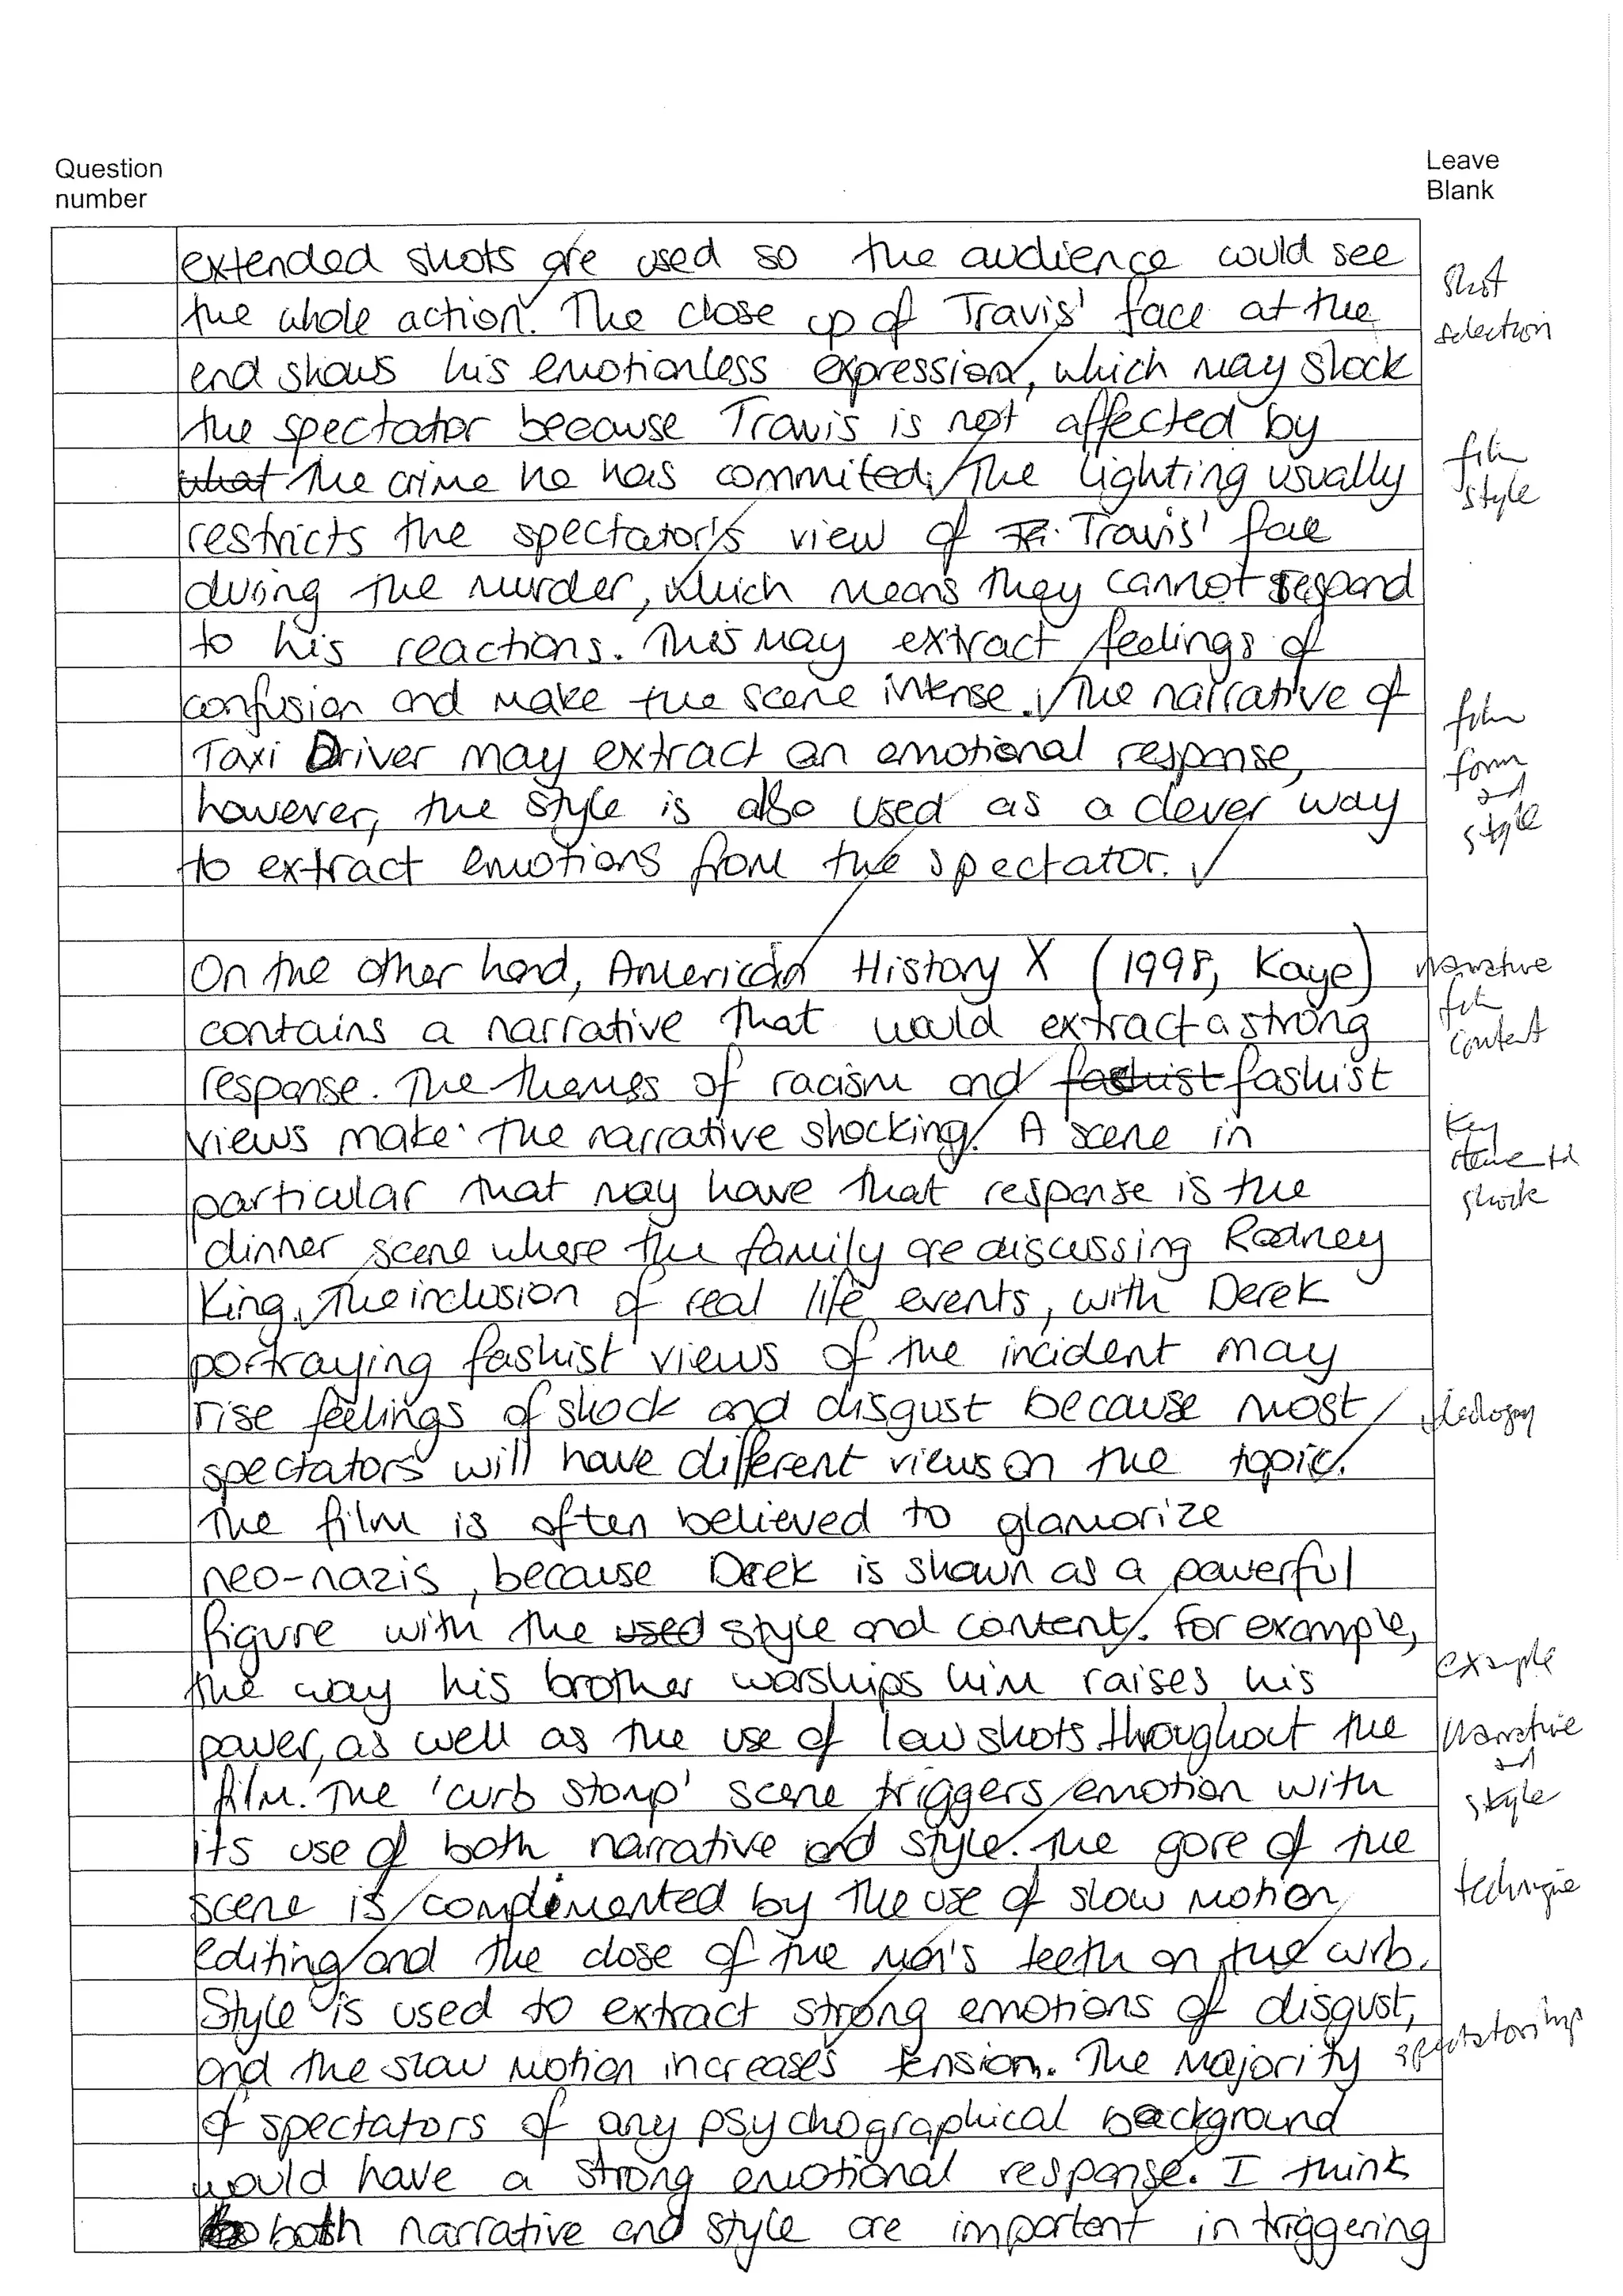 Question
number
Leave
Blank
extended shots are used so the audience could see
the whole action. The close up of Travis' face at the
end shows his emotionless expression, which may shock
the spectator because Travis is not affected by
what the crime he has commited. The lighting usually
restricts the spectator's view of Travis' face
during the murder, which means they cannot respond
to his reactions. This may extract feelings of
confusion and make the scene intense. The narrative of
Taxi Driver may extract an emotional response,
however, the style is also used as a clever way
to extract emotions from the spectator.
On the other hand, American History X (1998, Kaye)
contains a narrative that would extract a strong
response. The themes of racism and fashist
views make the narrative shocking. A scene in
particular that may have that response is the
dinner scene where the family are discussing Rodney
King. The inclusion of real life events, with Derek
portraying fashist views of the incident may
rise feelings of shock and disgust because most
spectators will have different views on the topic.
The film is often believed to glamorize
neo-nazis, because Derek is shown as a powerful
figure with the used style and content. For example,
the way his brother worships him raises his
power, as well as the use of low shots throughout the
film. The 'curb stomp' scene triggers emotion with
its use of both narrative and style. The gore of the
scene is complimented by the use of slow motion
editing and the close of the man's teeth on the curb.
Style is used to extract strong emotions of disgust,
and the slow motion increases tension. The majority
of spectators of any psychographical background
would have a strong emotional response. I think
both narrative and style are important in triggering
shot
selection
film
style
film
form
and
style
narrative
film
content
Key
theme to
shock
ideology
example
Narrative
and
style
technique
spectatorship